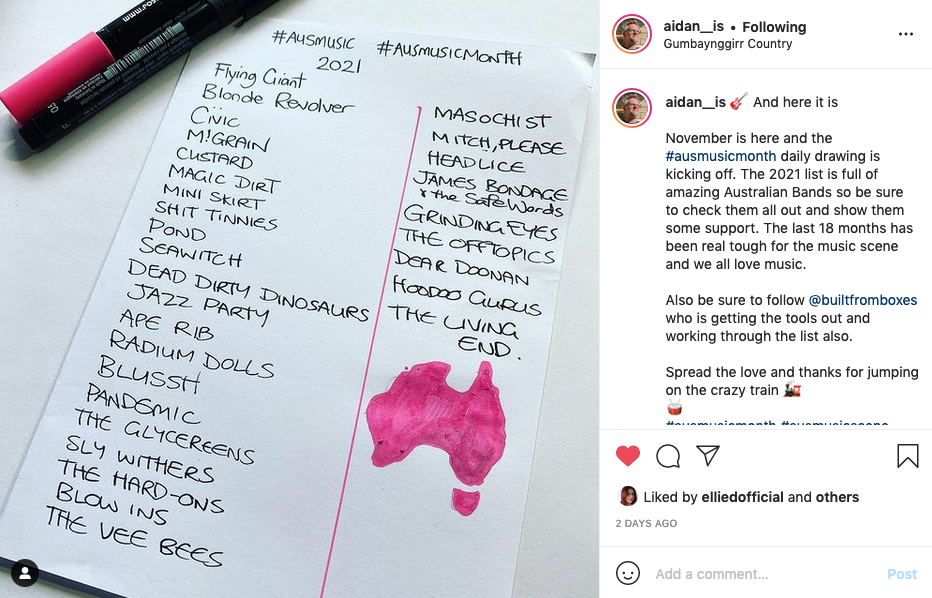 #AUSMUSIC #AUSMUSICMONTH
2021
Flying Giant
Blonde Revolver
CIVIC
M!GRAIN
CUSTARD
MAGIC DIRT
MINI SKIRT
SHIT TINNIES
POND
SEAWITCH
DEAD DIRTY DINOSAURS
JAZZ PARTY
APE RIB
RADIUM DOLLS
BLUSSH
PANDEMIC
THE GLYCEREENS
SLY WITHERS
THE HARD-ONS
BLOW INS
THE VEE BEES
MASOCHIST
MITCH, PLEASE
HEADLICE
JAMES BONDAGE
& the Safe Words
GRINDING EYES
THE OFFTOPICS
DEAR DOONAN
HOODOO GURUS
THE LIVING
END.
aidan__is • Following
Gumbaynggirr Country
aidan__is 🎸 And here it is
November is here and the
#ausmusicmonth daily drawing is
kicking off. The 2021 list is full of
amazing Australian Bands so be sure
to check them all out and show them
some support. The last 18 months has
been real tough for the music scene
and we all love music.
Also be sure to follow @builtfromboxes
who is getting the tools out and
working through the list also.
Spread the love and thanks for jumping
on the crazy train 🚂
🥁
#ausmusicmonth #ausmusicscene
Liked by elliedofficial and others
2 DAYS AGO
Add a comment... Post